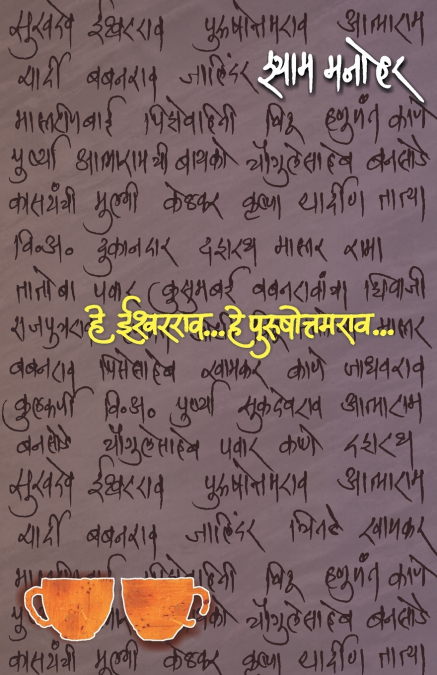 सुखदेव ईश्वरराव पुरुषोत्तमराव आत्माराम
यादी बबनराव जालिंदर श्याम मनोहर
मास्तरीणबाई पिसेवहिनी हणुमंत काणे
आत्मारामची बायको चौगुलेसाहेब बनसोडे
मुलगी केळकर कृष्णा तात्या
वि.अं. दुकानदार दशरथ मास्तर रामा
तातोबा पवार कुसुमबई बबनरावांचा शिवाजी
हे ईश्वरराव... हे पुरुषोत्तमराव...
बबनराव पिसेसाहेब खामकर काणे जाधवराव
कुलकर्णी वि.अं. सुकदेवराव आत्माराम
बनसोडे चौगुलेसाहेब पवार काणे दशरथ
सुखदेव ईश्वरराव पुरुषोत्तमराव आत्माराम
यादी बबनराव जालिंदर चितळे खामकर
हणुमंत काणे
चौगुलेसाहेब बनसोडे
मुलगी केळकर कृष्णा तात्या